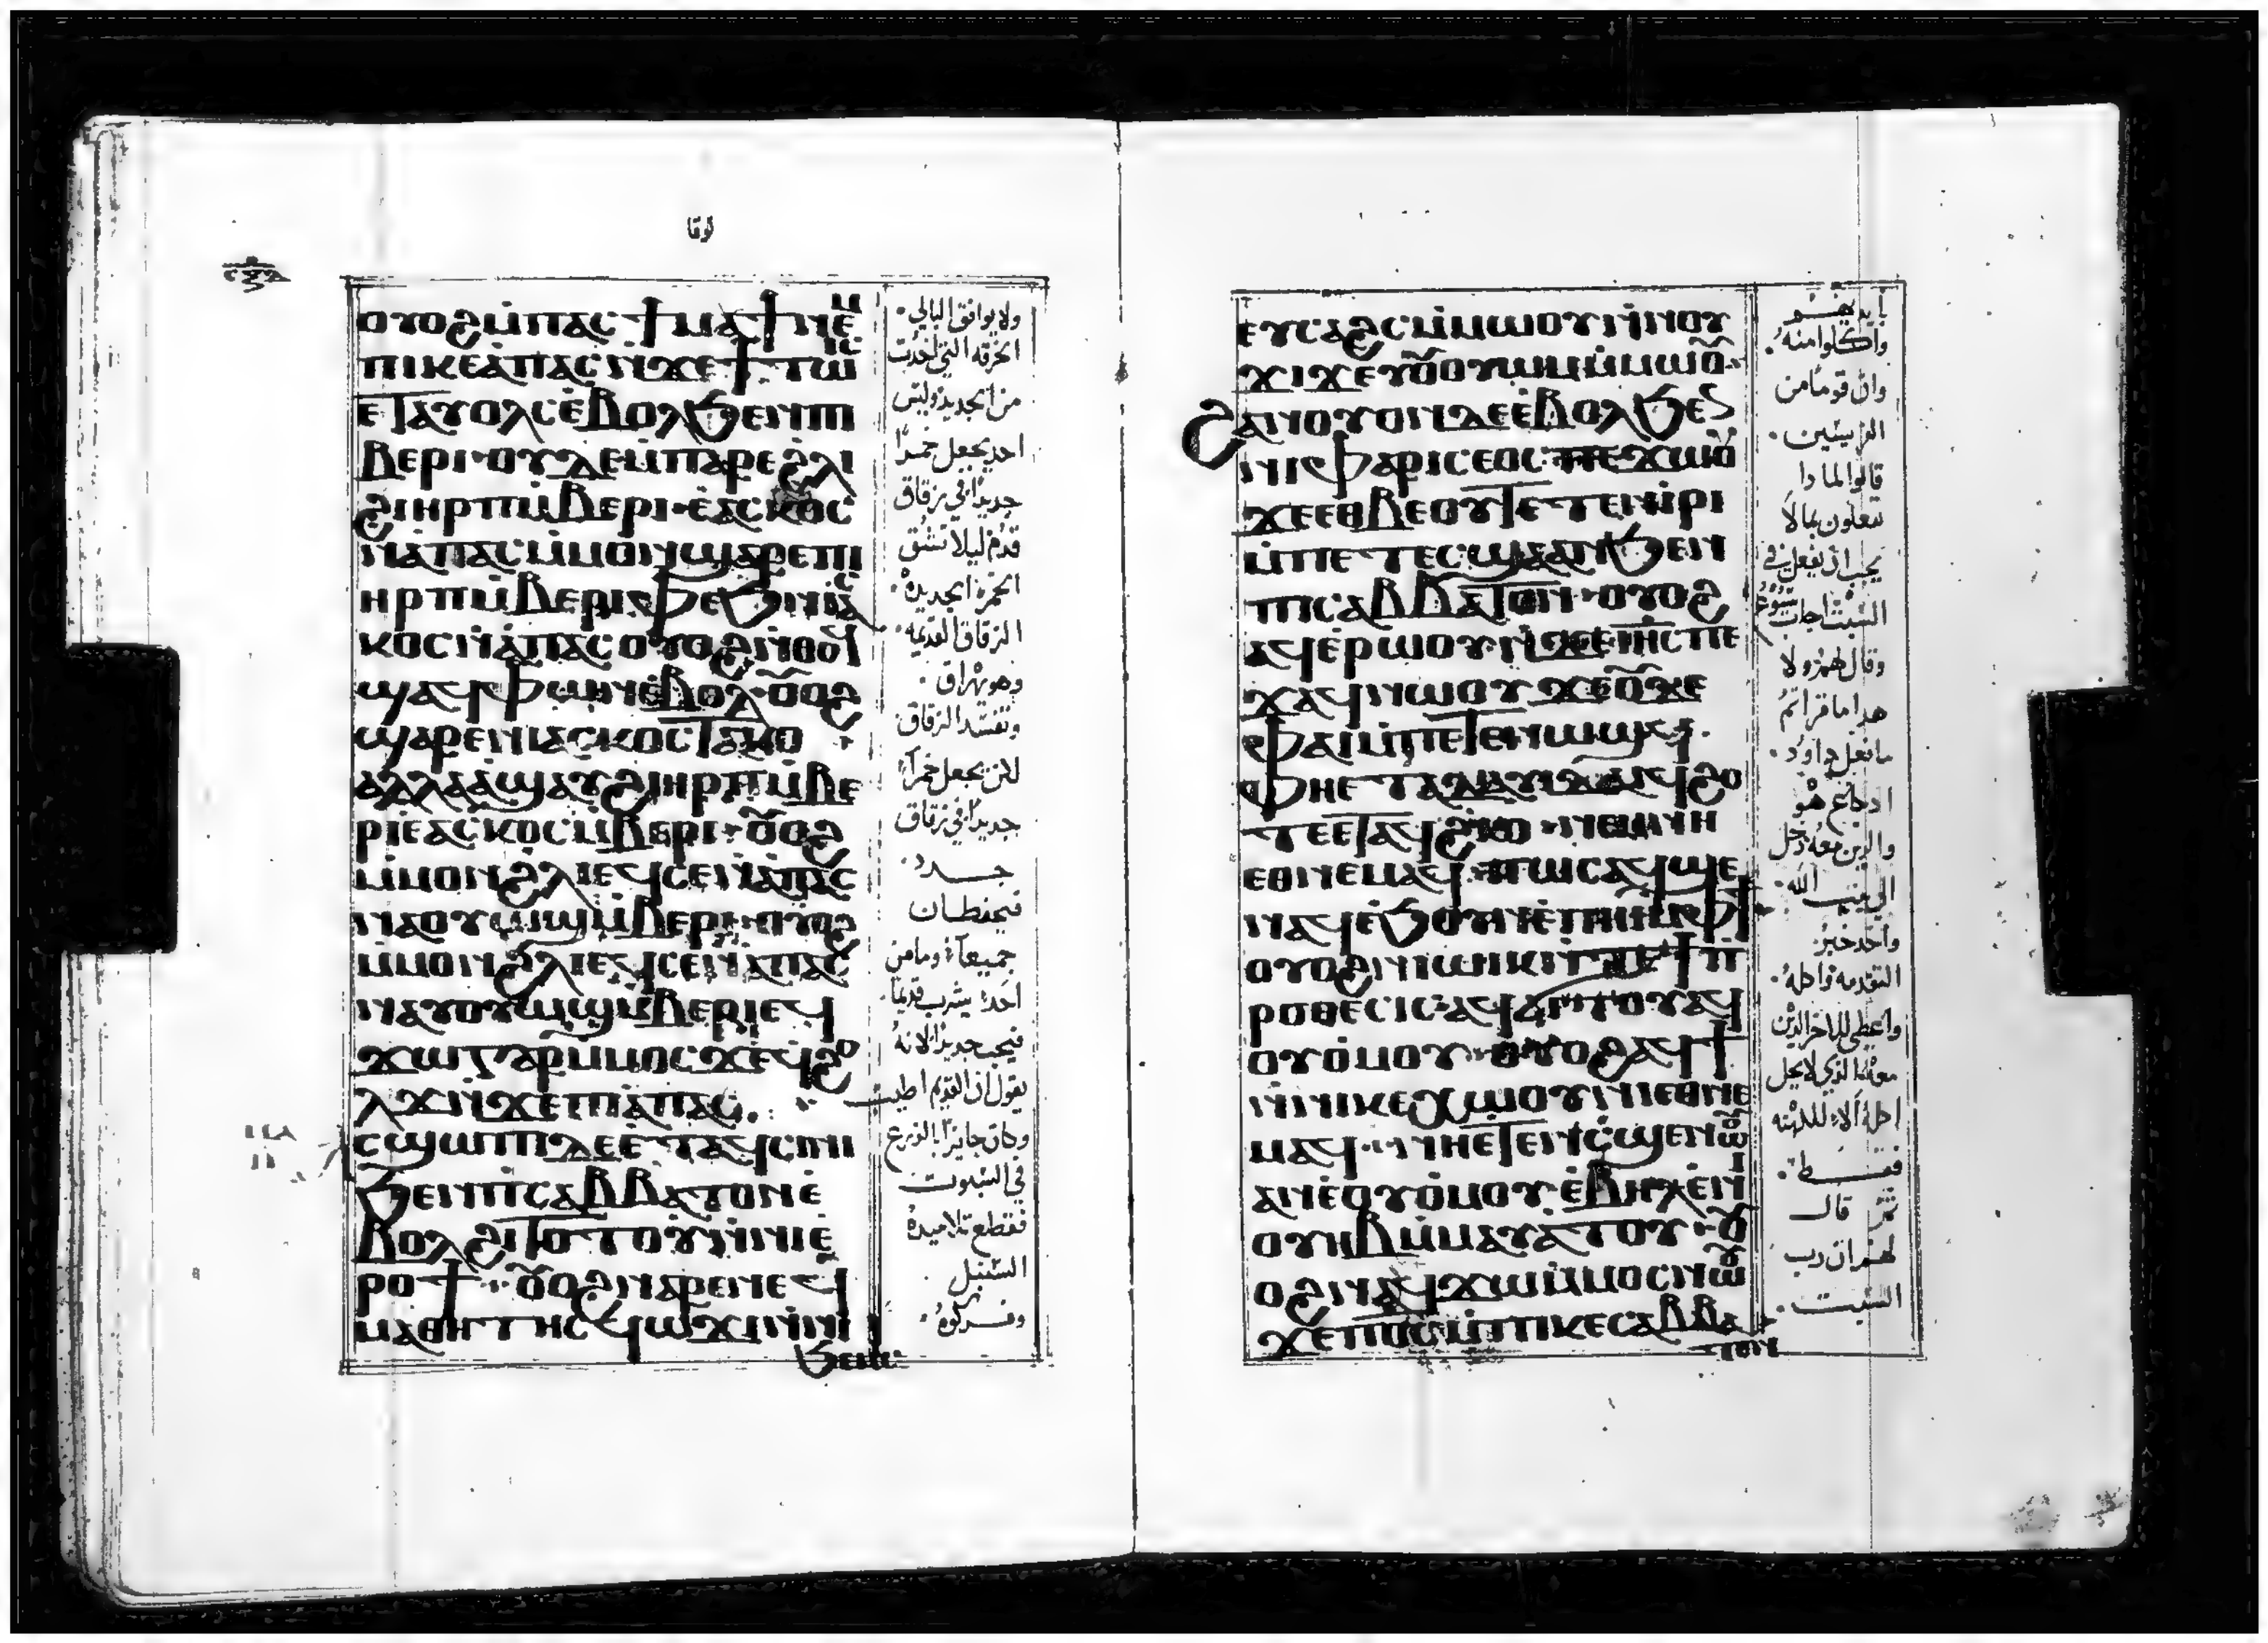 لوقا
ⲟⲩⲟϩ ⲙ̀ⲡⲁⲥϯⲙⲁϯ ⲛⲉⲙ
ⲡⲓⲕⲉⲁ̀ⲡⲁⲥ ⲛ̀ϫⲉϯⲧⲱⲓⲥ
ⲉⲧⲁⲩⲟⲗⲥ ⲉ̀ⲃⲟⲗ ϧⲉⲛ ⲡⲓ
ⲃⲉⲣⲓ· ⲟⲩⲇⲉ ⲙ̀ⲡⲁⲣⲉ ϩⲗⲓ
ϩⲓ ⲏⲣⲡ ⲙ̀ⲃⲉⲣⲓ· ⲉ̀ⲁⲥⲕⲟⲥ
ⲛ̀ⲁ̀ⲡⲁⲥ ⲙ̀ⲙⲟⲛ ϣⲁⲣⲉ ⲡⲓ
ⲏⲣⲡ ⲙ̀ⲃⲉⲣⲓ ⲫⲉϧ ⲛⲓⲁⲥ
ⲕⲟⲥ ⲛ̀ⲁ̀ⲡⲁⲥ ⲟⲩⲟϩ ⲛ̀ⲑⲟϥ
ϣⲁϥⲫⲱⲛ ⲉ̀ⲃⲟⲗ· ⲟⲩⲟϩ
ϣⲁⲣⲉ ⲛⲓⲁⲥⲕⲟⲥ ⲧⲁⲕⲟ
ⲁⲗⲗⲁ ⲁ̀ϣⲁⲩϩⲓ ⲏⲣⲡ ⲙ̀ⲃⲉ
ⲣⲓ ⲉ̀ⲁⲥⲕⲟⲥ ⲙ̀ⲃⲉⲣⲓ· ⲟⲩⲟϩ
ⲙ̀ⲙⲟⲛ ϩⲗⲓ ⲉϥⲥⲉ ⲛ̀ⲁ̀ⲡⲁⲥ
ⲛⲁⲟⲩⲱϣ ⲙ̀ⲃⲉⲣⲓ· ⲟⲩⲟϩ
ⲙ̀ⲙⲟⲛ ϩⲗⲓ ⲉϥⲥⲉ ⲛ̀ⲁ̀ⲡⲁⲥ
ⲛⲁⲩⲟⲩⲱϣ ⲙ̀ⲃⲉⲣⲓ ⲉϥ
ϫⲱ ⲅⲁⲣ ⲙ̀ⲙⲟⲥ ϫⲉ ϥϩⲟ
ⲗϫ ⲛ̀ϫⲉ ⲡⲓⲁ̀ⲡⲁⲥ.
ⲥϣⲱⲡⲓ ⲇⲉ ⲉ̀ⲧⲁϥⲥⲓⲛⲓ
ϧⲉⲛ ⲡⲓⲥⲁⲃⲃⲁⲧⲟⲛ ⲉ̀
ⲃⲟⲗ ϩⲓⲧⲟⲧⲟⲩ ⲛ̀ⲛⲓⲉ̀
ⲣⲟϯ· ⲟⲩⲟϩ ⲛⲁⲣⲉ ⲛⲉϥ
ⲙⲁⲑⲏⲧⲏⲥ ϥⲱϫⲓ ⲛ̀ⲛⲓ
ولا يوافق البالي.
الخرقه التي اخدت
من الجديد وليس
احد يجعل خمرًا
جديدًا في زقاق
قدم ليلا تشق
الخمره الجديده
الزقاق القديمه.
وهو يهراق.
وتفسد الزقاق
لكن يجعل خمرًا
جديدًا في زقاق
جدد.
فيحفظان
جميعاً وما من
احد يشرب قديمًا.
فيحب جديدًا لانه
يقول ان القديم اطيب
وكان جايزًا بالزرع
في السبوت
فقطع تلاميده
السنبل.
وفركوه.
ⲉⲩⲥⲁϩⲥ ⲙ̀ⲙⲱⲟⲩ ⲛ̀ⲛⲟⲩ
ϫⲓϫ ⲉⲩⲟⲩⲱⲙ ⲙ̀ⲙⲱⲟⲩ·
ϩⲁⲛⲟⲩⲟⲛ ⲇⲉ ⲉ̀ⲃⲟⲗ ϧⲉⲛ
ⲛⲓⲫⲁⲣⲓⲥⲉⲟⲥ ⲡⲉϫⲱⲟⲩ
ϫⲉ ⲉⲑⲃⲉⲟⲩ ⲧⲉⲧⲉⲛⲓ̀ⲣⲓ
ⲙ̀ⲡⲉⲧⲉⲥϣⲉ ⲁⲛ ϧⲉⲛ
ⲡⲓⲥⲁⲃⲃⲁⲧⲟⲛ· ⲟⲩⲟϩ
ⲁϥⲉⲣⲟⲩⲱ ⲛ̀ϫⲉ ⲓⲏⲥ ⲡⲉ
ϫⲁϥ ⲛⲱⲟⲩ ϫⲉ ⲟⲩⲇⲉ
ⲫⲁⲓ ⲙ̀ⲡⲉⲧⲉⲛⲱϣϥ.
ⲫⲏⲉⲧⲁ ⲇⲁⲩⲓⲇ ⲁⲓϥ ϩⲟ
ⲧⲉ ⲉⲧⲁϥϩⲕⲟ· ⲛⲉⲙ ⲛⲏ
ⲉⲑⲛⲉⲙⲁϥ· ⲡⲱⲥ ⲁϥϣⲉ
ⲛⲁϥ ⲉ̀ϧⲟⲩⲛ ⲉ̀ⲡⲏⲓ ⲙ̀ⲫϯ
ⲟⲩⲟϩ ⲛⲓⲱⲓⲕ ⲛ̀ⲧⲉ ϯⲡ
ⲣⲟⲑⲉⲥⲓⲥ· ⲁϥϭⲓⲧⲟⲩ ⲁϥ
ⲟⲩⲟ̀ⲙⲟⲩ· ⲟⲩⲟϩ ⲁϥϯ
ⲛ̀ⲛⲓⲕⲉⲭⲱⲟⲩⲛⲓ ⲉⲑⲛⲉ
ⲙⲁϥ· ⲛⲏⲉⲧⲉⲛⲥ̀ϣⲉ ⲛⲱⲟⲩ
ⲁⲛ ⲉ̀ⲟⲩⲟ̀ⲙⲟⲩ ⲉ̀ⲃⲏⲗ ⲉ̀ⲛⲓ
ⲟⲩⲏⲃ ⲙ̀ⲙⲁⲩⲁⲧⲟⲩ· ⲟⲩ
ⲟϩ ⲛⲁϥϫⲱ ⲙ̀ⲙⲟⲥ ⲛⲱⲟⲩ
ϫⲉ ⲡⲟⲥ ⲙ̀ⲡⲓⲕⲉⲥⲁⲃⲃⲁ
ⲧⲟⲛ
بايديهم
واكلوا منه.
وان قومًا من
الفريسيين.
قالوا لمادا
تفعلون مالا
يجب ان يفعل في
السبت اجاب يسوع
وقال لهم ولا
هدا ما قراتم
ما فعل داود.
اد جاع هو
والدين معه دخل
الي بيت الله.
واخد خبز
التقدمه واكله.
واعطي للاخر الدين
معه الذي لا يحل
اكله الا للكهنه
فقط.
ثم قال
لهم ان رب
السبت.